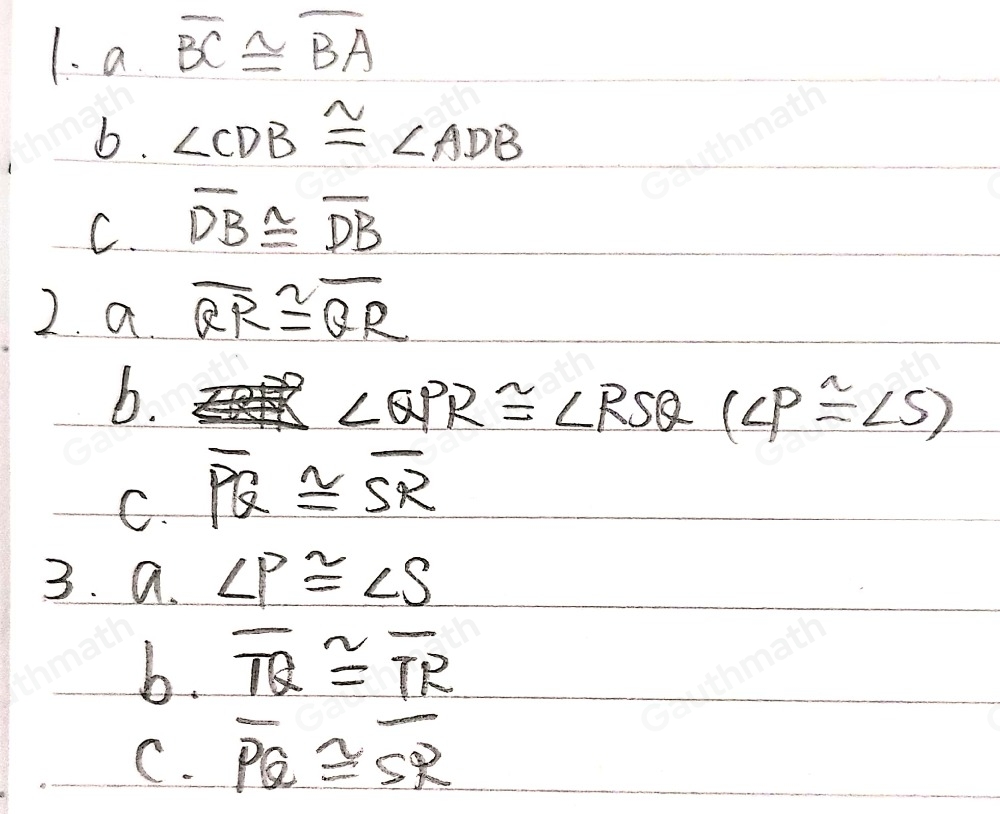 1. a. B̅C̅ ≅ B̅A̅
b. ∠CDB ≅ ∠ADB
c. D̅B̅ ≅ D̅B̅
2. a. Q̅R̅ ≅ Q̅R̅
b. ∠QPR ≅ ∠RSQ (∠P ≅ ∠S)
c. P̅Q̅ ≅ S̅R̅
3. a. ∠P ≅ ∠S
b. T̅Q̅ ≅ T̅R̅
c. P̅Q̅ ≅ S̅R̅